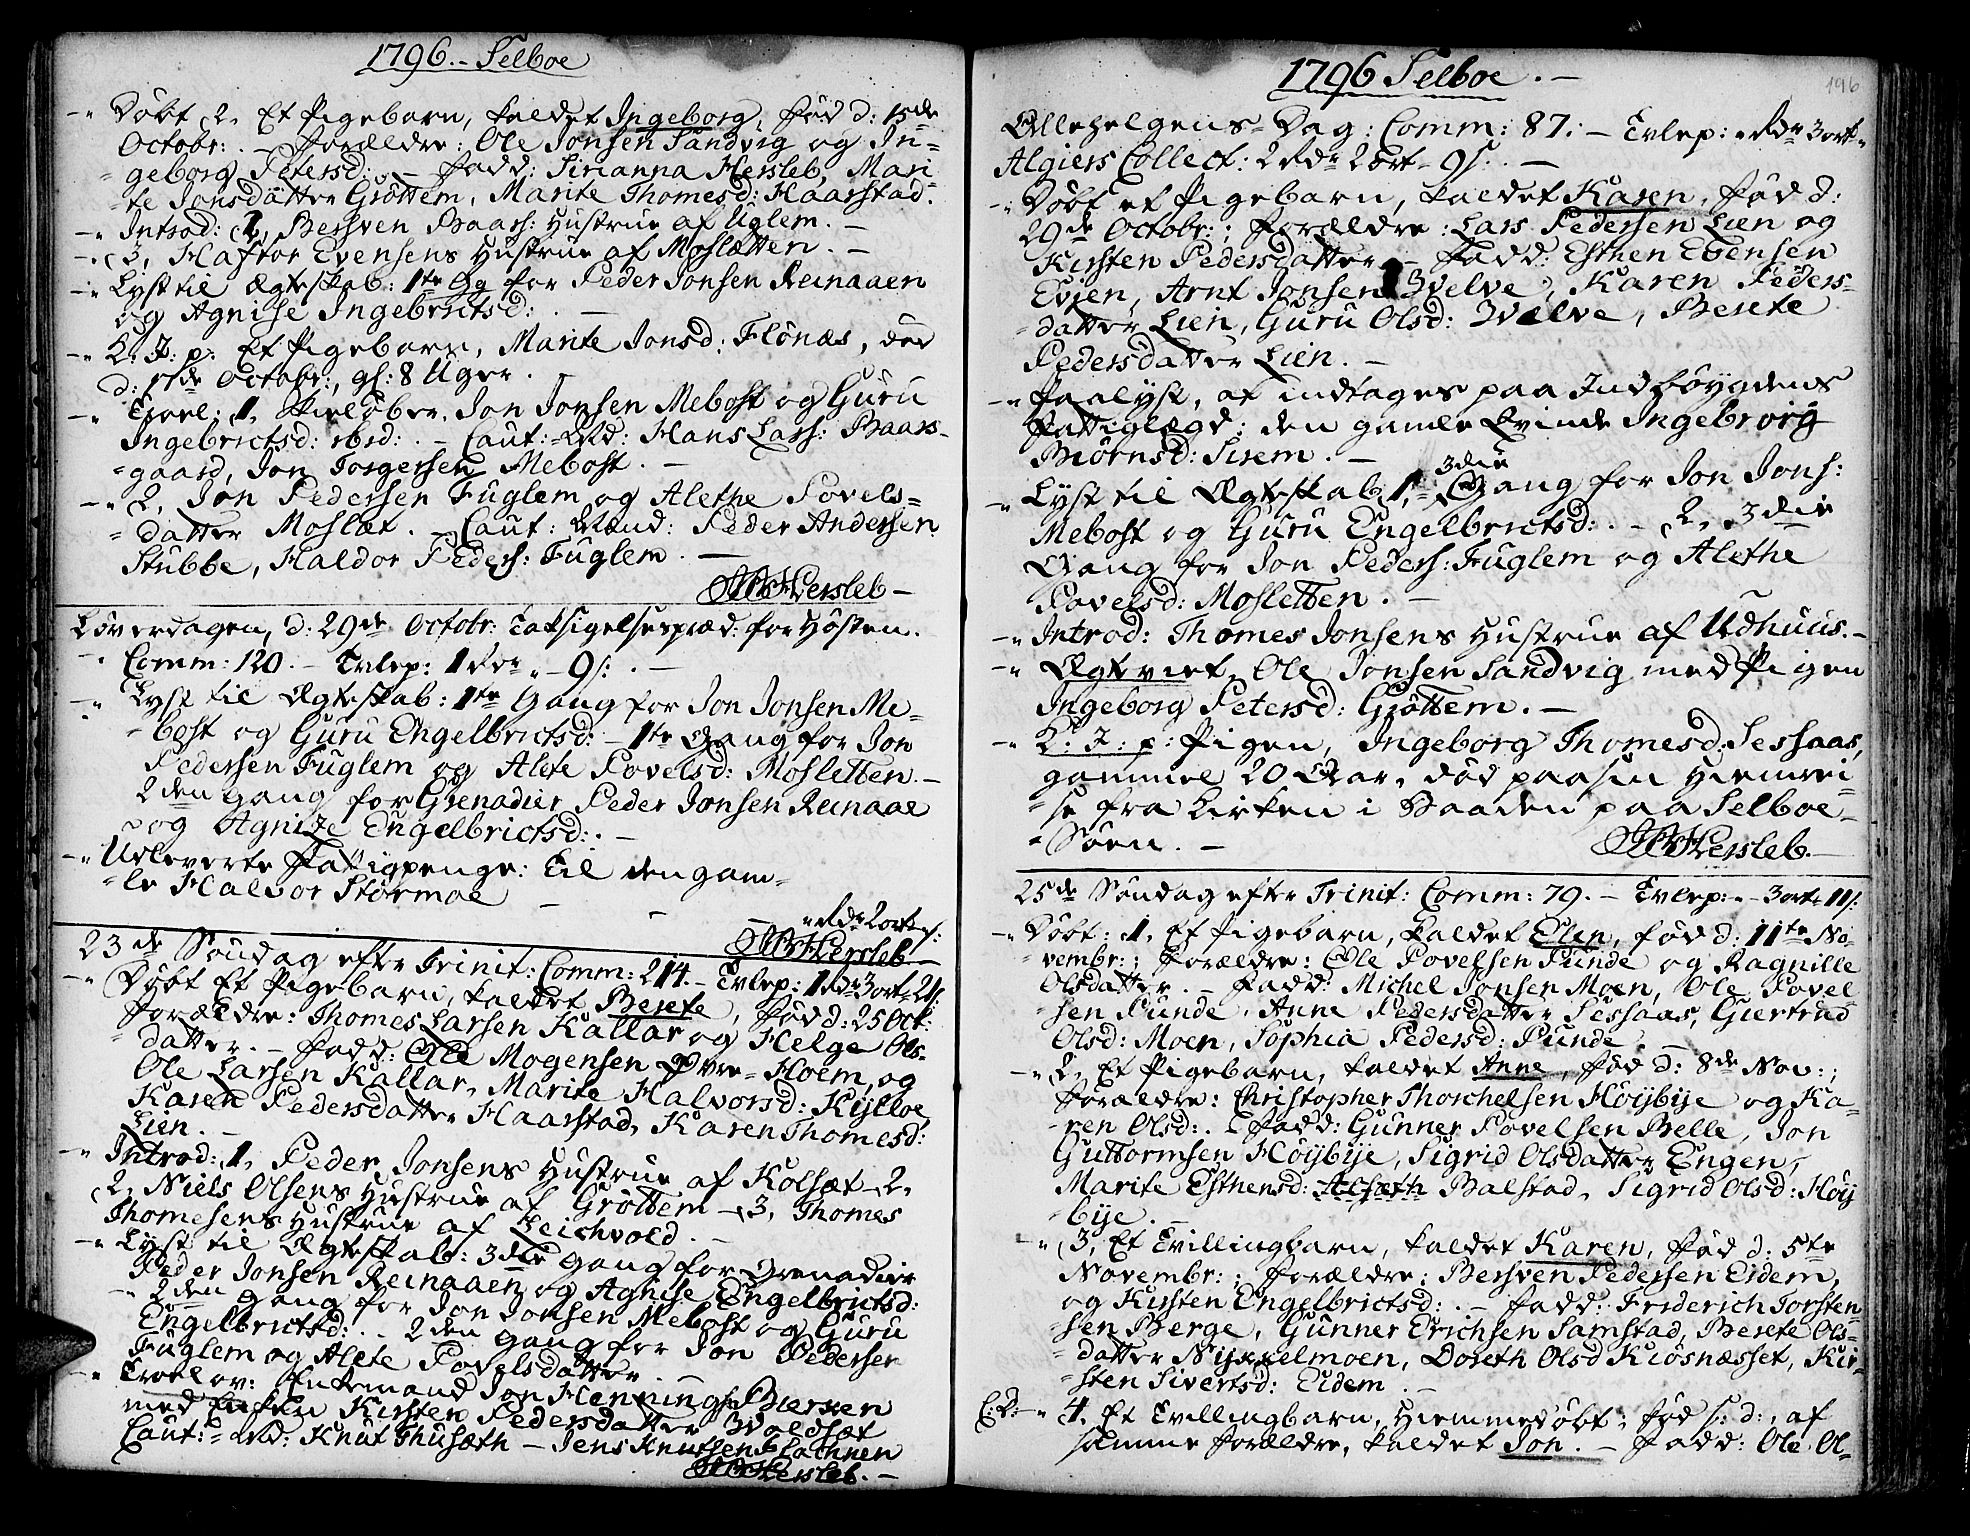 1796. - Selboe
-" Döbt 2, Et Pigebarn, kaldet Ingeborg, fød d: 15de
Octobr: . - forældre: Ole Jonsen Sandvig og In-
-geborg Petersd: . - fadd: Sirianna Hersleb, Mari-
-te Jonsdatter Gröttem, Marite Thomesd: Haarstad.
-" Introd: 1, Bersven Baars: Hustrue af Uglem. -
-" 3, Haftor Evensens Hustrue af Moslætten. -
-" Lyst til Ægteskab: 1te Gg for Peder Jonsen Reinaaen
og Agnise Ingebrictsd: . -
-" L: J: p: Et Pigebarn, Marite Jonsd: Flönæs, død
d: 17de Octobr:, gl: 8 Uger. -
-" Trol: 1, Jon Jonsen Mebost og Guru
Ingebrictsd: ibid: . - Caut:-Md: Hans Lars: Baars-
-gaard, Jon Torgersen Mebost. -
-" 2, Jon Pedersen Fuglem og Alethe Povels-
-datter Moslæt. - Caut: Mænd: Peder Andersen
Stubbe, Haldor Peders: Fuglem. -
Hersleb -
Löverdagen, d: 29de Octobr: Taksigelsespræd: for Hösten.
Comm: 120. - Tvlep: 1 Rdr " - 9 s: . -
-" Lyst til Ægteskab: 1te Gang for Jon Jonsen Me-
-bost og Guru Engelbrictsd: - 1te Gang for Jon
Pedersen Fuglem og Alete Povelsd: Mosletten. -
2den Gang for Grenadier Peder Jonsen Reinaae
og Agnise Engelbrictsd: . -
-" Udleverte Fattigpenge: Til den gam-
-le Halvor Stormoe - - - " Rdr 2 ort " s:
Hersleb -
23de Söndag efter Trinit: Comm: 214. - Tvlep: 1 Rdr 3 ort 21 s:
-" Döbt Et Pigebarn, kaldet Berete, fød d: 25 Oct:
forældre: Thomes Larsen Kallar og Helge Ols-
-datter. - fadd: Ole Mogensen Övre-Hoem, og
Ole Larsen Kallar, Marite Halvorsd: Kylloe,
Karen Pedersdatter Haarstad, Karen Thomesd:
Lien. -
-" Introd: 1, Peder Jonsens Hustrue af Kolsæt - 2,
2, Niels Olsens Hustrue af Gröttem - 3, Thomes
Thomesens Hustrue af Leichvold. -
-" Lyst til Ægteskab: 3die Gang for Grenadier
Peder Jonsen Reinaaen og Agnise Engelbrictsd:
- 2den Gang for Jon Jonsen Mebost og Guru
Engelbrictsd: . - 2den Gang for Jon Pedersen
Fuglem og Alete Povelsdatter. -
-" Trolov: Enkemand Jon Hennings: Biersen
med Enken Kirsten Pedersdatter Woldsæt
Caut:-Md: Knut Thusæth - Jens Knutsen
Hersleb. -
1796 Selboe. -
196
Allehelgens-Dag: Comm: 87: - Tvlep: " Rdr 3 ort "
Algiers Collect: 2 Rdr 2 ort - 9 s: . -
-" Döbt et Pigebarn, kaldet Karen, fød d:
29de Octobr: ; forældre: Lars Pedersen Lien og
Kirsten Pedersdatter - fadd: Esthen Evensen
Evien, Arnt Jonsen Welve, Karen Peders-
-datter Lien, Guru Olsd: Welve, Berete
Pedersdatter Lien. -
-" Paalyst, at indtages paa Indböygdens
Fattiglægd: den gamle Qvinde Ingebrorg
Biörnsd: Sirem. -
-" Lyst til Ægteskab, 1, 3die Gang for Jon Jons:
Mebost og Guru Engelbrictsd: . - 2, 3die
Gang for Jon Peders: Fuglem og Alethe
Povelsd: Mosletten. -
-" Introd: Thomes Jonsens Hustrue af Udhuus. -
-" Ægteviet, Ole Jonsen Sandvig med Pigen
Ingeborg Petersd: Gröttem. -
-" L: J: p: Pigen, Ingeborg Thomesd: Sessaas,
gammel 20 Aar, död paa sin Hiemrei-
-se fra Kirken i Baaden paa Selboe-
-Söen. -
Hersleb. -
25de Söndag efter Trinit: Comm: 79. - Tvlep: - - 3 ort 11 s:
-" Döbt: 1, Et Pigebarn, kaldet Elen, fød d: 11te No-
-vembr: ; forældre: Ole Povelsen Punde og Ragnille
Olsdatter. - fadd: Michel Jonsen Moen, Ole Povel-
-sen Punde, Anne Pedersdatter Sessaas, Giertrud
Olsd: Moen, Sophia Pedersd: Punde. -
-" 2, Et Pigebarn, kaldet Anne, fød d: 8de Nov: ;
forældre: Christopher Thorchelsen Höybye og Ka-
-ren Olsd: . - fadd: Gunner Povelsen Belle, Jon
Guttormsen Höybye, Sigrid Olsdatter Engen,
Marite Esthensd: Alseth Balstad, Sigrid Olsd: Höy-
-bye. -
-" 3, Et Tvillingbarn, kaldet Karen, fød d: 5te
Novembr: ; forældre: Bersven Pedersen Eidem,
og Kirsten Engelbrictsd: . - fadd: Friderich Torsten-
-sen Berge, Gunner Erichsen Samstad, Berete Ols-
-datter Nykkelmoen, Doreth Olsd Kiösnæsset, Kir-
-sten Sivertsd: Eidem. -
-" 4, Et Tvillingbarn, Hiemmedöbt, fød s: d:, af
samme forældre, kaldet Jon. - fadd: Ole Ol-